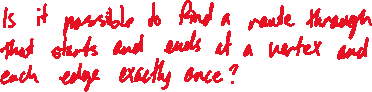 Is it possible to find a route through
that starts and ends at a vertex and
each edge exactly once?